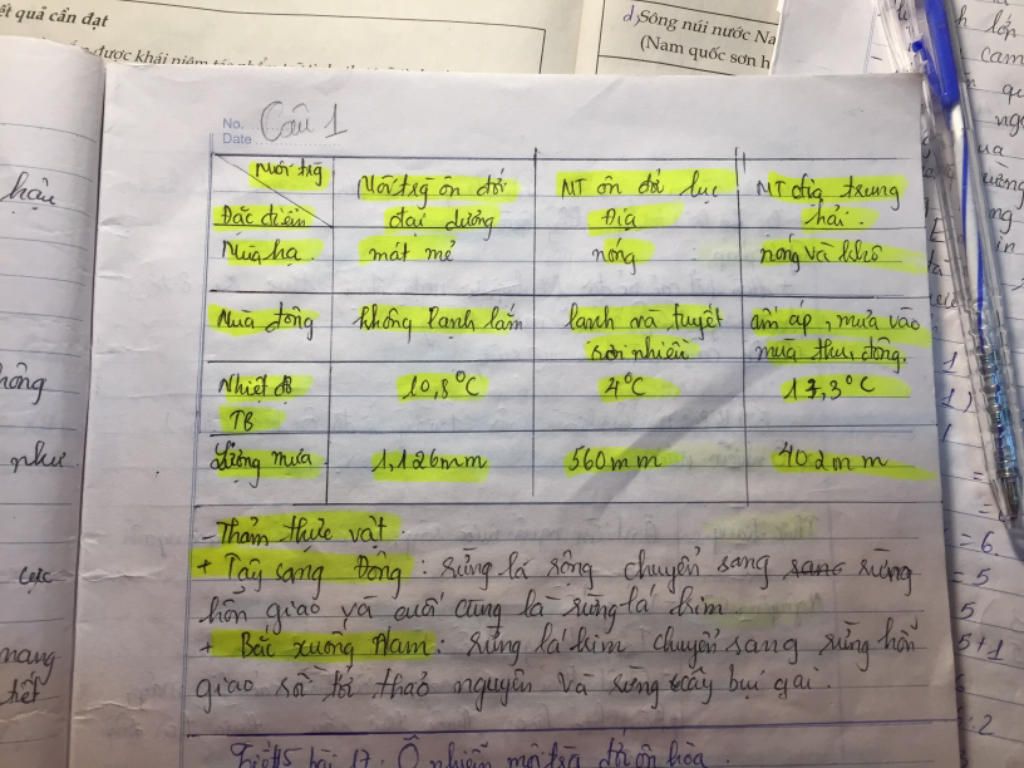 ết quả cần đạt
được khái niệm
d) Sông núi nước Na
(Nam quốc sơn h
No. Câu 1
Date
Môi trg
Đặc điểm
Môi trg ôn đới đại dương
MT ôn đới lục Địa
MT địa trung hải.
Mùa hạ. mát mẻ nóng nóng và khô
Mùa đông không lạnh lắm lạnh và tuyết rơi nhiều ấm áp, mưa vào mùa thu, đông.
Nhiệt độ TB 10,8°C 4°C 17,3°C
Lượng mưa 1,126mm 560mm 402mm
- Thảm thực vật.
+ Tây sang Đông: rừng lá rộng chuyển sang rừng
hỗn giao và cuối cùng là rừng lá kim
+ Bắc xuống Nam: rừng lá kim chuyển sang rừng hỗn
giao rồi tới thảo nguyên và rừng cây bụi gai.
Tiết 5 bài 17: Ô nhiễm môi trg đới ôn hòa.
hậu
hông
như
cực
mang
hết
lớn
cam
= 6.
= 5
5
5+1